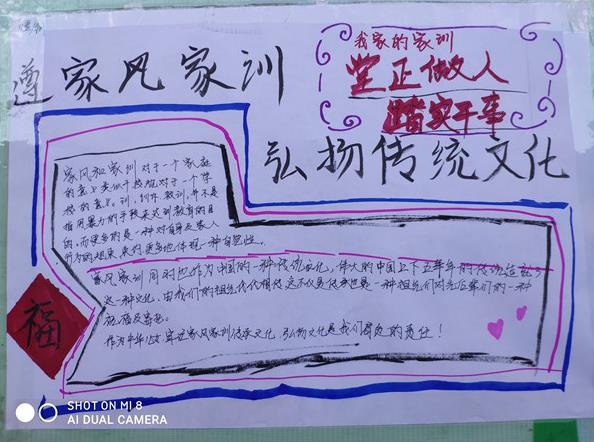 遵家风家训
我家的家训
堂正做人
踏实干事
弘扬传统文化
家风和家训对于一个家庭
的意义类似于校规对于一个学
校的意义。训,训诫教训,并不是
指用暴力的手段来达到教育的目
的,而更多的是一种对自身及家人
行为的约束,更多地体现一种自觉性。
家风家训同时也作为中国的一种传统文化,伟大的中国上下五千年的传统造就了
这一种文化,由我们的祖先代代相传 这不仅是传承也是一种祖先们对后辈们的一种
祝福及寄托。
作为中华儿女 家风家训传承文化 弘扬文化是我们肩负的责任!
福
SHOT ON MI 8
AI DUAL CAMERA